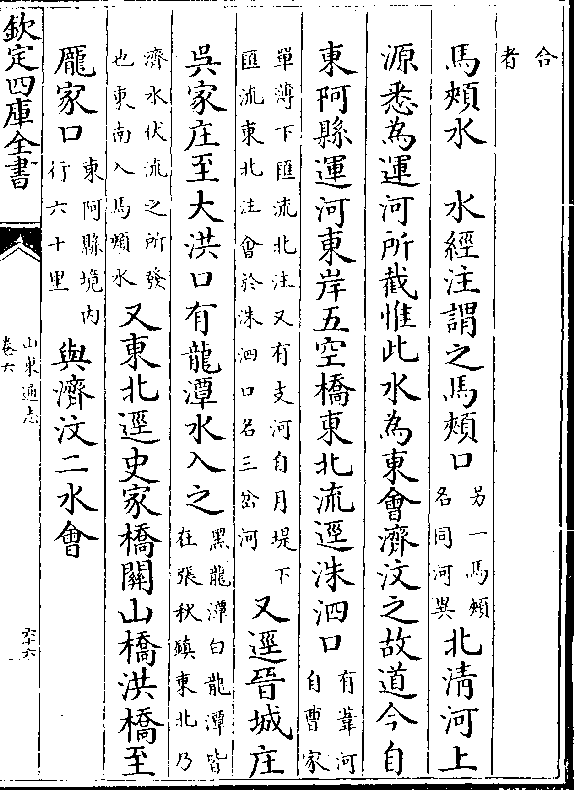 合
者
馬頰水　水經注謂之馬頰口
另一馬頰
名同河異
北清河上
源悉為運河所截惟此水為東會濟汶之故道今自
東阿縣運河東岸五空橋東北流逕洙泗口
有葦河
自曹家
單薄下匯流北注又有支河自月堤下
匯流東北注會於洙泗口名三岔河
又逕晉城庄
吳家庄至大洪口有龍潭水入之
黑龍潭白龍潭皆
在張秋鎮東北乃
濟水伏流之所發
也東南入馬頰水
又東北逕史家橋關山橋洪橋至
龎家口
東阿縣境内
行六十里
與濟汶二水會
欽定四庫全書
山東通志
卷六